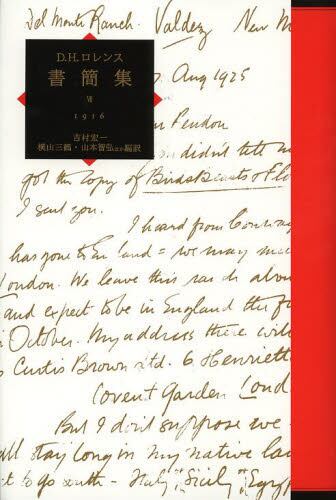 Del Monte Ranch. Valdez New M
D.H.ロレンス
書簡集
Ⅶ
1916
吉村宏一
横山三鶴・山本智弘ほか編訳
Aug 1925
didn't tell me
got the copy of Birds Beasts & Flo
I sent you.
I heard from
has gone to England = we may
London. We leave this ranch abou
and expect to be in England the fi
October. My address there will
Curtis Brown Ltd. 6 Henriett
Covent Garden Lond
But I don't suppose we
all stay long in my native la
to go south - Italy, Sicily, Egyp